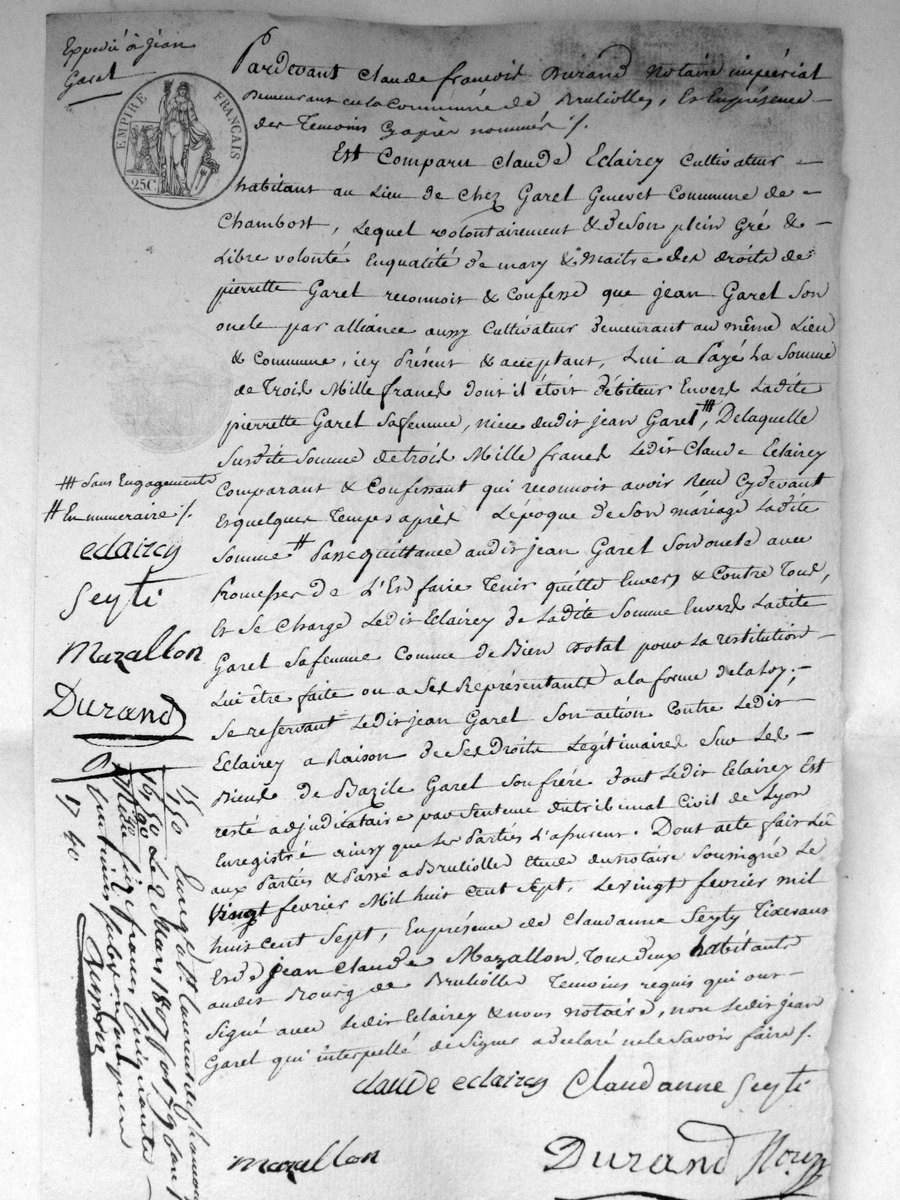 Expedié à jean
Garel
EMPIRE FRANÇAIS
25C
Pardevant Claude françois Durand Notaire impérial
Demeurant en la Commune de Brullioles, Et En présence
des Temoins Cy après nommés /.
Est Comparu Claude Eclairey Cultivateur
habitant au Lieu de Chez Garel Genevet Commune de
Chambost, Lequel volontairement & de son plein Gré &
Libre volonté En qualité de mary & Maitre des droits de
pierrette Garel reconnoit & Confesse que jean Garel Son
oncle par alliance aussy Cultivateur demeurant au même Lieu
& Commune, icy Présent & acceptant, Lui a Payé La Somme
de Trois Mille francs dont il étoit débiteur Envers Ladite
pierrette Garel sa femme, niece dudit jean Garel, De laquelle
Susdite Somme de trois Mille francs Ledit Claude Eclairey
Comparant & Confessant qui reconnoit avoir Reçu Cy devant
Et quelques Temps après L'epoque de Son mariage Ladite
Somme Passe quittance audit jean Garel Son oncle avec
Promesse de L'En faire Tenir quitte Envers & Contre Tous,
Et Se Charge Ledit Eclairey de Ladite Somme Envers Ladite
Garel Sa femme Comme de Bien Dotal pour La restitution
Lui être faite ou a Ses Représentants a la forme de la loy;
Se reservant Ledit jean Garel Son action Contre Ledit
Eclairey a Raison de Ses Droits Légitimaires Sur Les
Biens de Bazile Garel Son frère dont Ledit Eclairey Est
resté adjudicataire par Sentence du tribunal Civil de Lyon
Enregistré ainsy que Les Parties L'assurent. Dont acte fait Lu
aux Parties & Passé a Brulliolle Etude du notaire Soussigné Le
Vingt février Mil huit Cent Sept, Le vingt février mil
huit Cent Sept, En présence de Claudanne Seyty Tixerand
Et de jean Claude Mazallon Tous deux habitants
audit Bourg de Brulliolle Temoins requis qui ont
Signé avec Ledit Eclairey & nous notaire, non Ledit jean
Garel qui interpellé de Signer a déclaré ne le Savoir faire /.
sans Engagements
En numeraire /.
eclairey
Seyti
Mazallon
Durand
claude eclairey Claudanne Seyti
mazallon
Durand Nore
15 50
1 50
16 90 Le 2 Mars 1807
17 40